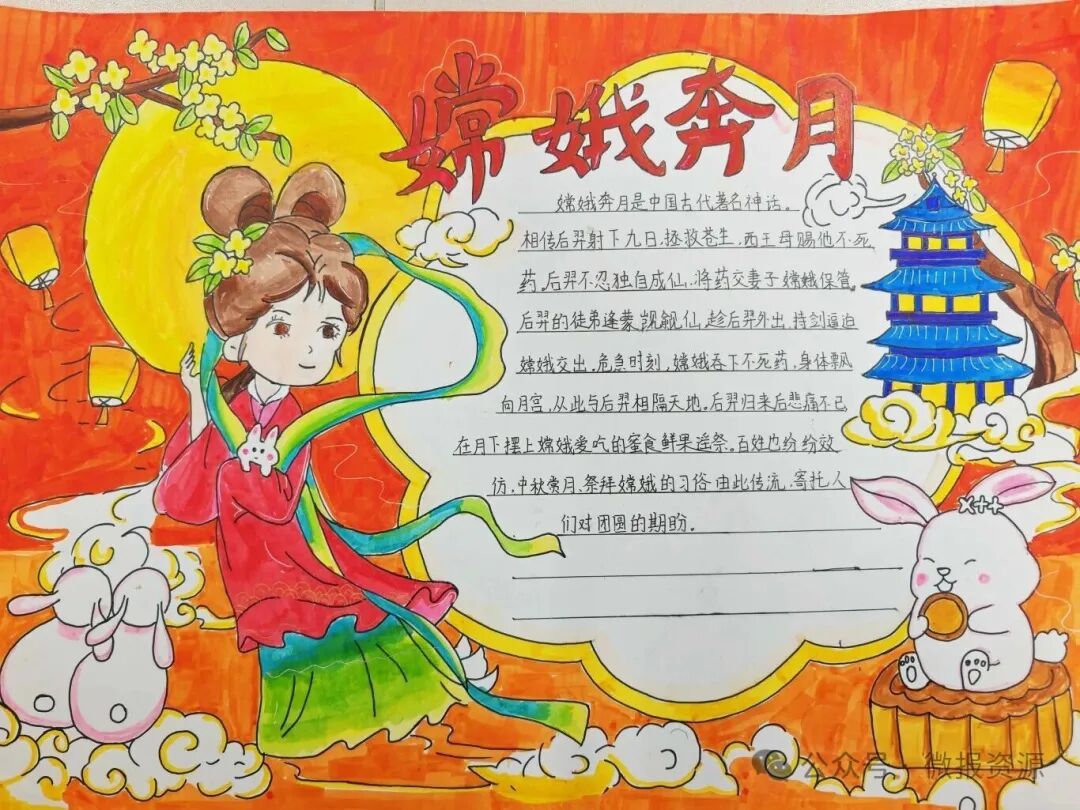 嫦娥奔月
嫦娥奔月是中国古代著名神话。
相传后羿射下九日,拯救苍生,西王母赐他不死
药。后羿不忍独自成仙,将药交妻子嫦娥保管。
后羿的徒弟逢蒙觊觎仙,趁后羿外出,持剑逼迫
嫦娥交出。危急时刻,嫦娥吞下不死药,身体飘
向月宫,从此与后羿相隔天地。后羿归来后悲痛不已,
在月下摆上嫦娥爱吃的蜜食鲜果遥祭。百姓也纷纷效
仿,中秋赏月、祭拜嫦娥的习俗由此传流,寄托人
们对团圆的期盼。
公众号·微报资源